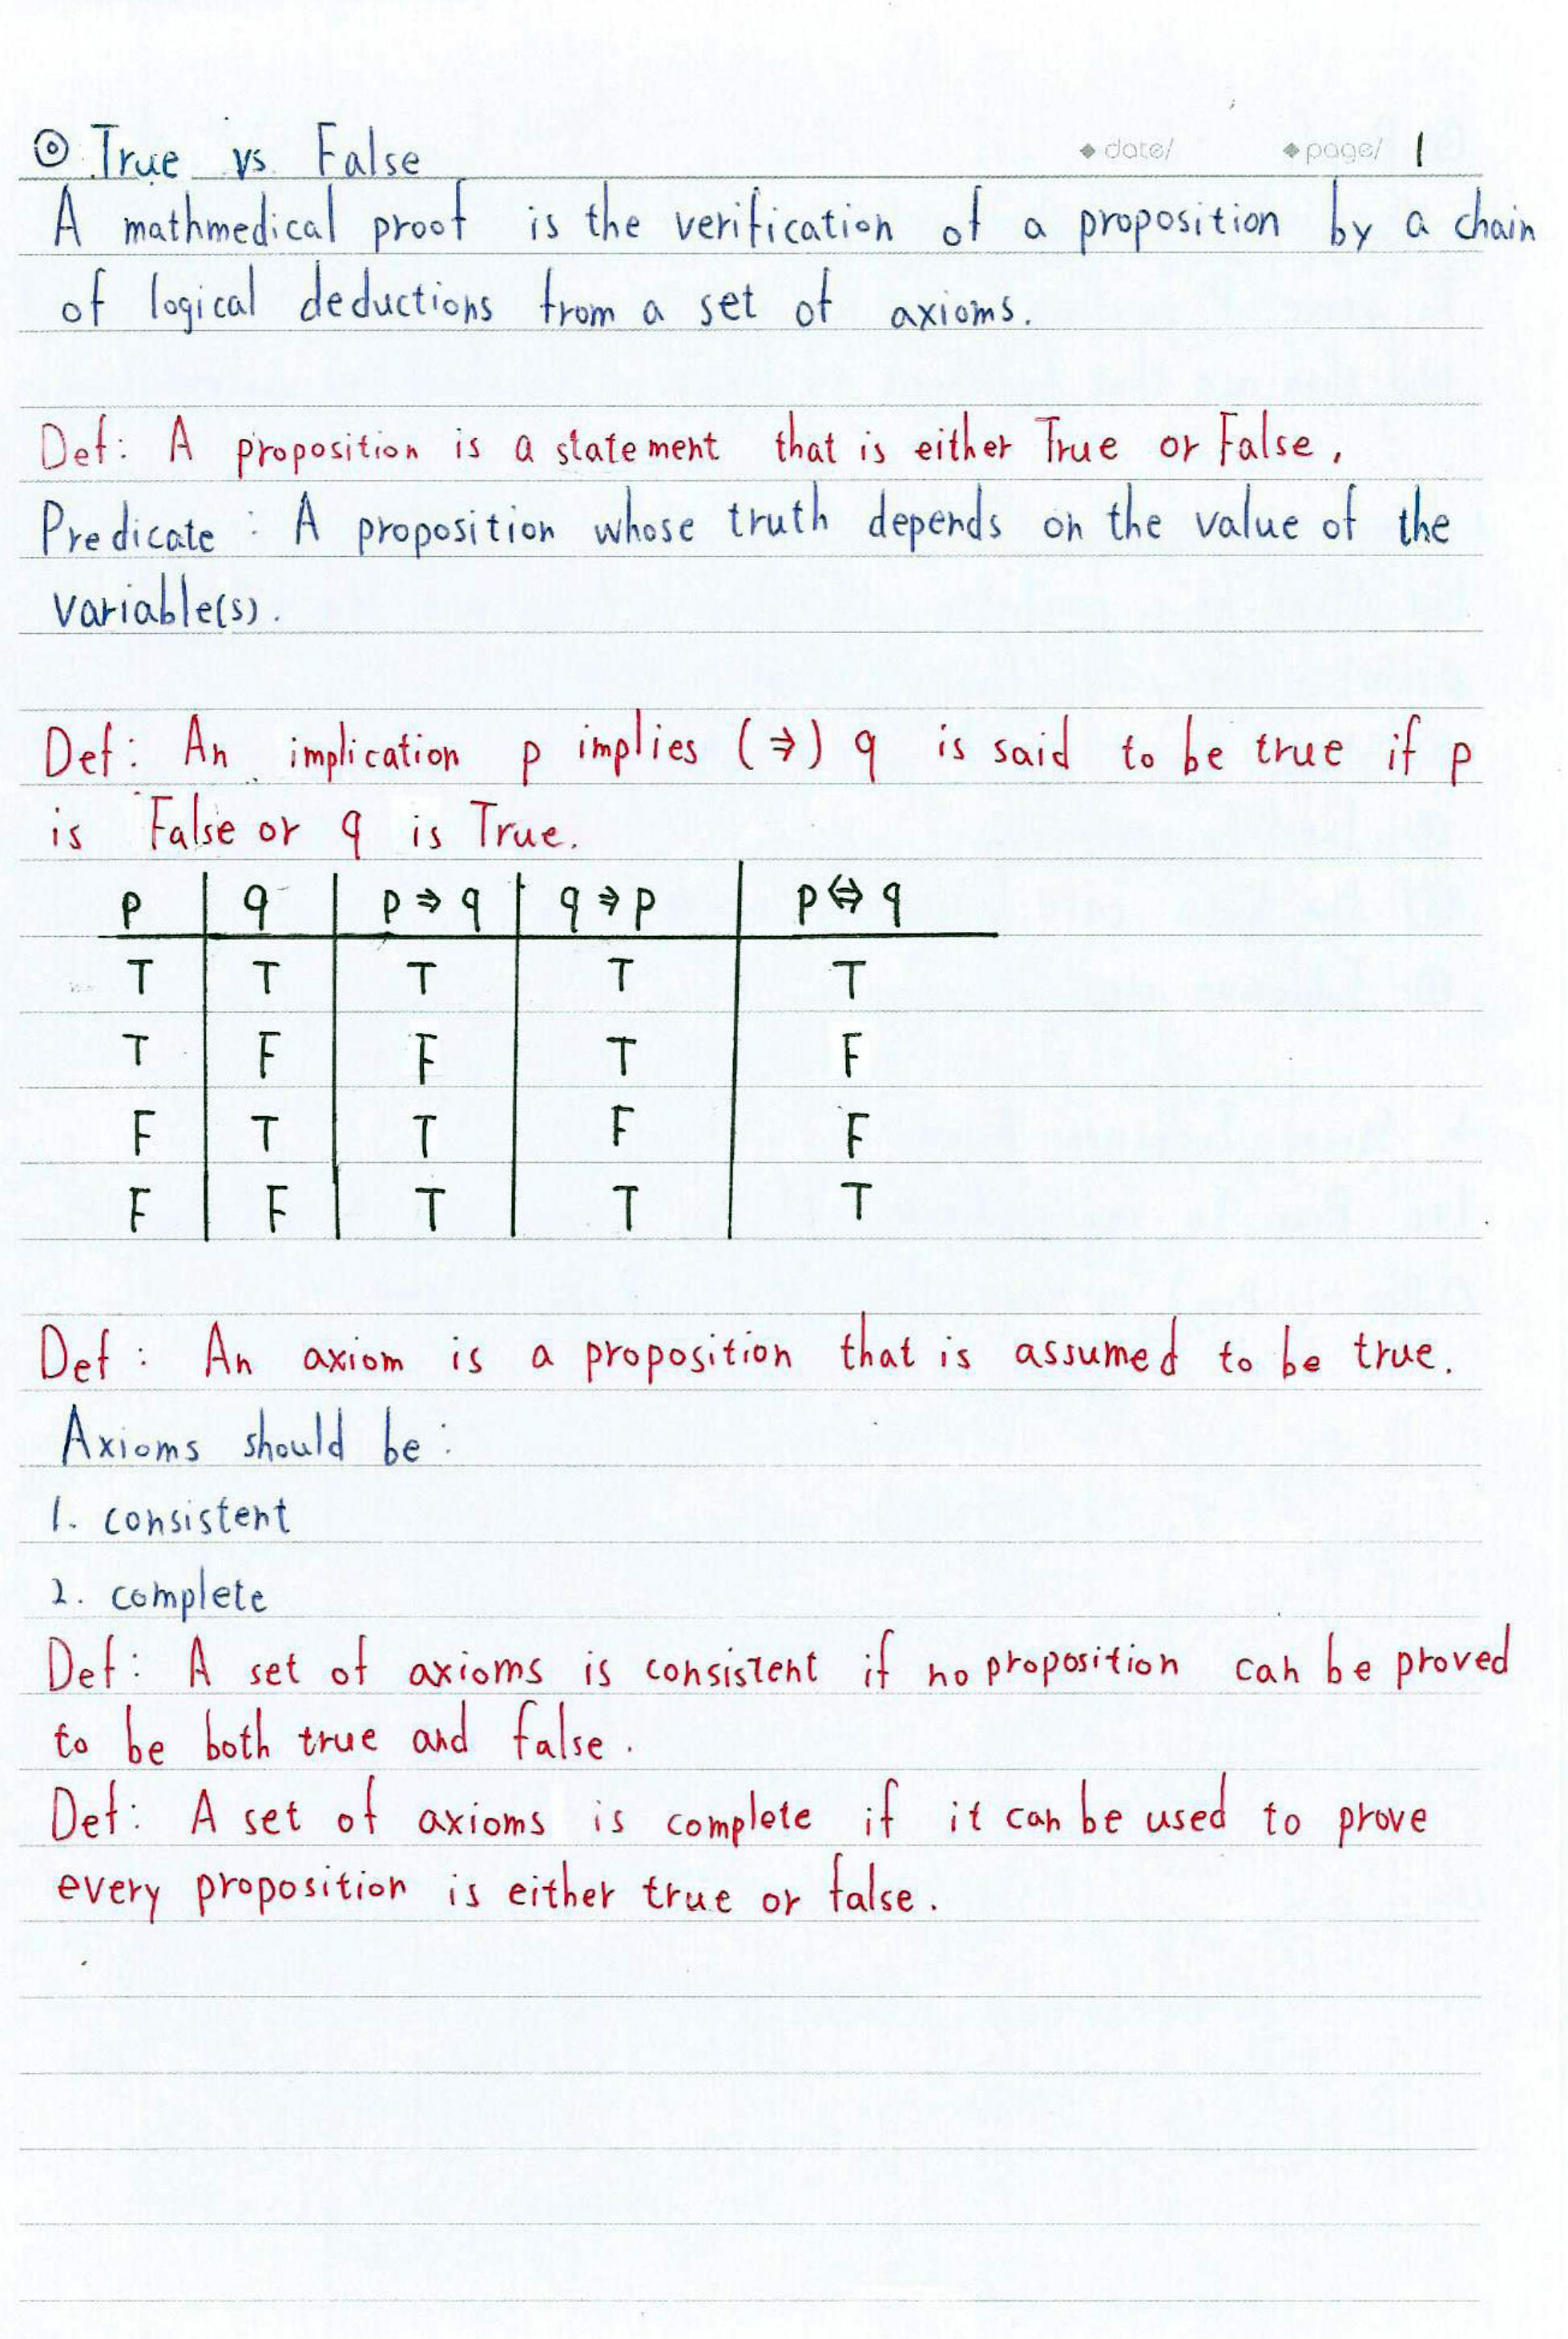 ◎ True vs. False ◆ date/ ◆ page/ 1
A mathmedical proof is the verification of a proposition by a chain
of logical deductions from a set of axioms.
Def: A proposition is a statement that is either True or False.
Predicate: A proposition whose truth depends on the value of the
variable(s).
Def: An implication p implies (⇒) q is said to be true if p
is False or q is True.
p | q | p ⇒ q | q ⇒ p | p ⇔ q
T | T | T | T | T
T | F | F | T | F
F | T | T | F | F
F | F | T | T | T
Def: An axiom is a proposition that is assumed to be true.
Axioms should be:
1. consistent
2. complete
Def: A set of axioms is consistent if no proposition can be proved
to be both true and false.
Def: A set of axioms is complete if it can be used to prove
every proposition is either true or false.